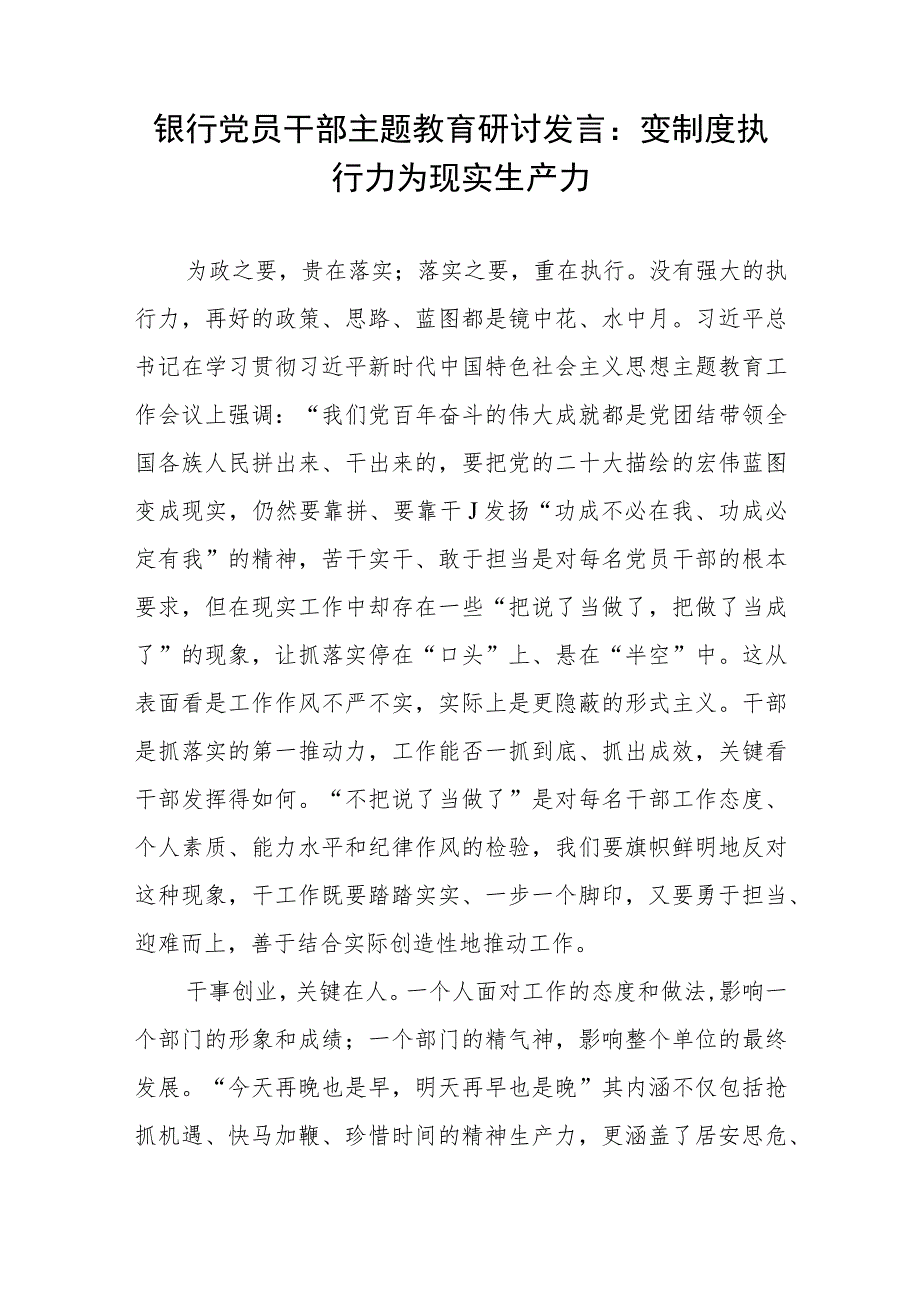 银行党员干部主题教育研讨发言：变制度执
行力为现实生产力
为政之要，贵在落实；落实之要，重在执行。没有强大的执
行力，再好的政策、思路、蓝图都是镜中花、水中月。习近平总
书记在学习贯彻习近平新时代中国特色社会主义思想主题教育工
作会议上强调：“我们党百年奋斗的伟大成就都是党团结带领全
国各族人民拼出来、干出来的，要把党的二十大描绘的宏伟蓝图
变成现实，仍然要靠拼、要靠干J发扬“功成不必在我、功成必
定有我”的精神，苦干实干、敢于担当是对每名党员干部的根本
要求，但在现实工作中却存在一些“把说了当做了，把做了当成
了”的现象，让抓落实停在“口头”上、悬在“半空”中。这从
表面看是工作作风不严不实，实际上是更隐蔽的形式主义。干部
是抓落实的第一推动力，工作能否一抓到底、抓出成效，关键看
干部发挥得如何。“不把说了当做了”是对每名干部工作态度、
个人素质、能力水平和纪律作风的检验，我们要旗帜鲜明地反对
这种现象，干工作既要踏踏实实、一步一个脚印，又要勇于担当、
迎难而上，善于结合实际创造性地推动工作。
干事创业，关键在人。一个人面对工作的态度和做法,影响一
个部门的形象和成绩；一个部门的精气神，影响整个单位的最终
发展。“今天再晚也是早，明天再早也是晚”其内涵不仅包括抢
抓机遇、快马加鞭、珍惜时间的精神生产力，更涵盖了居安思危、